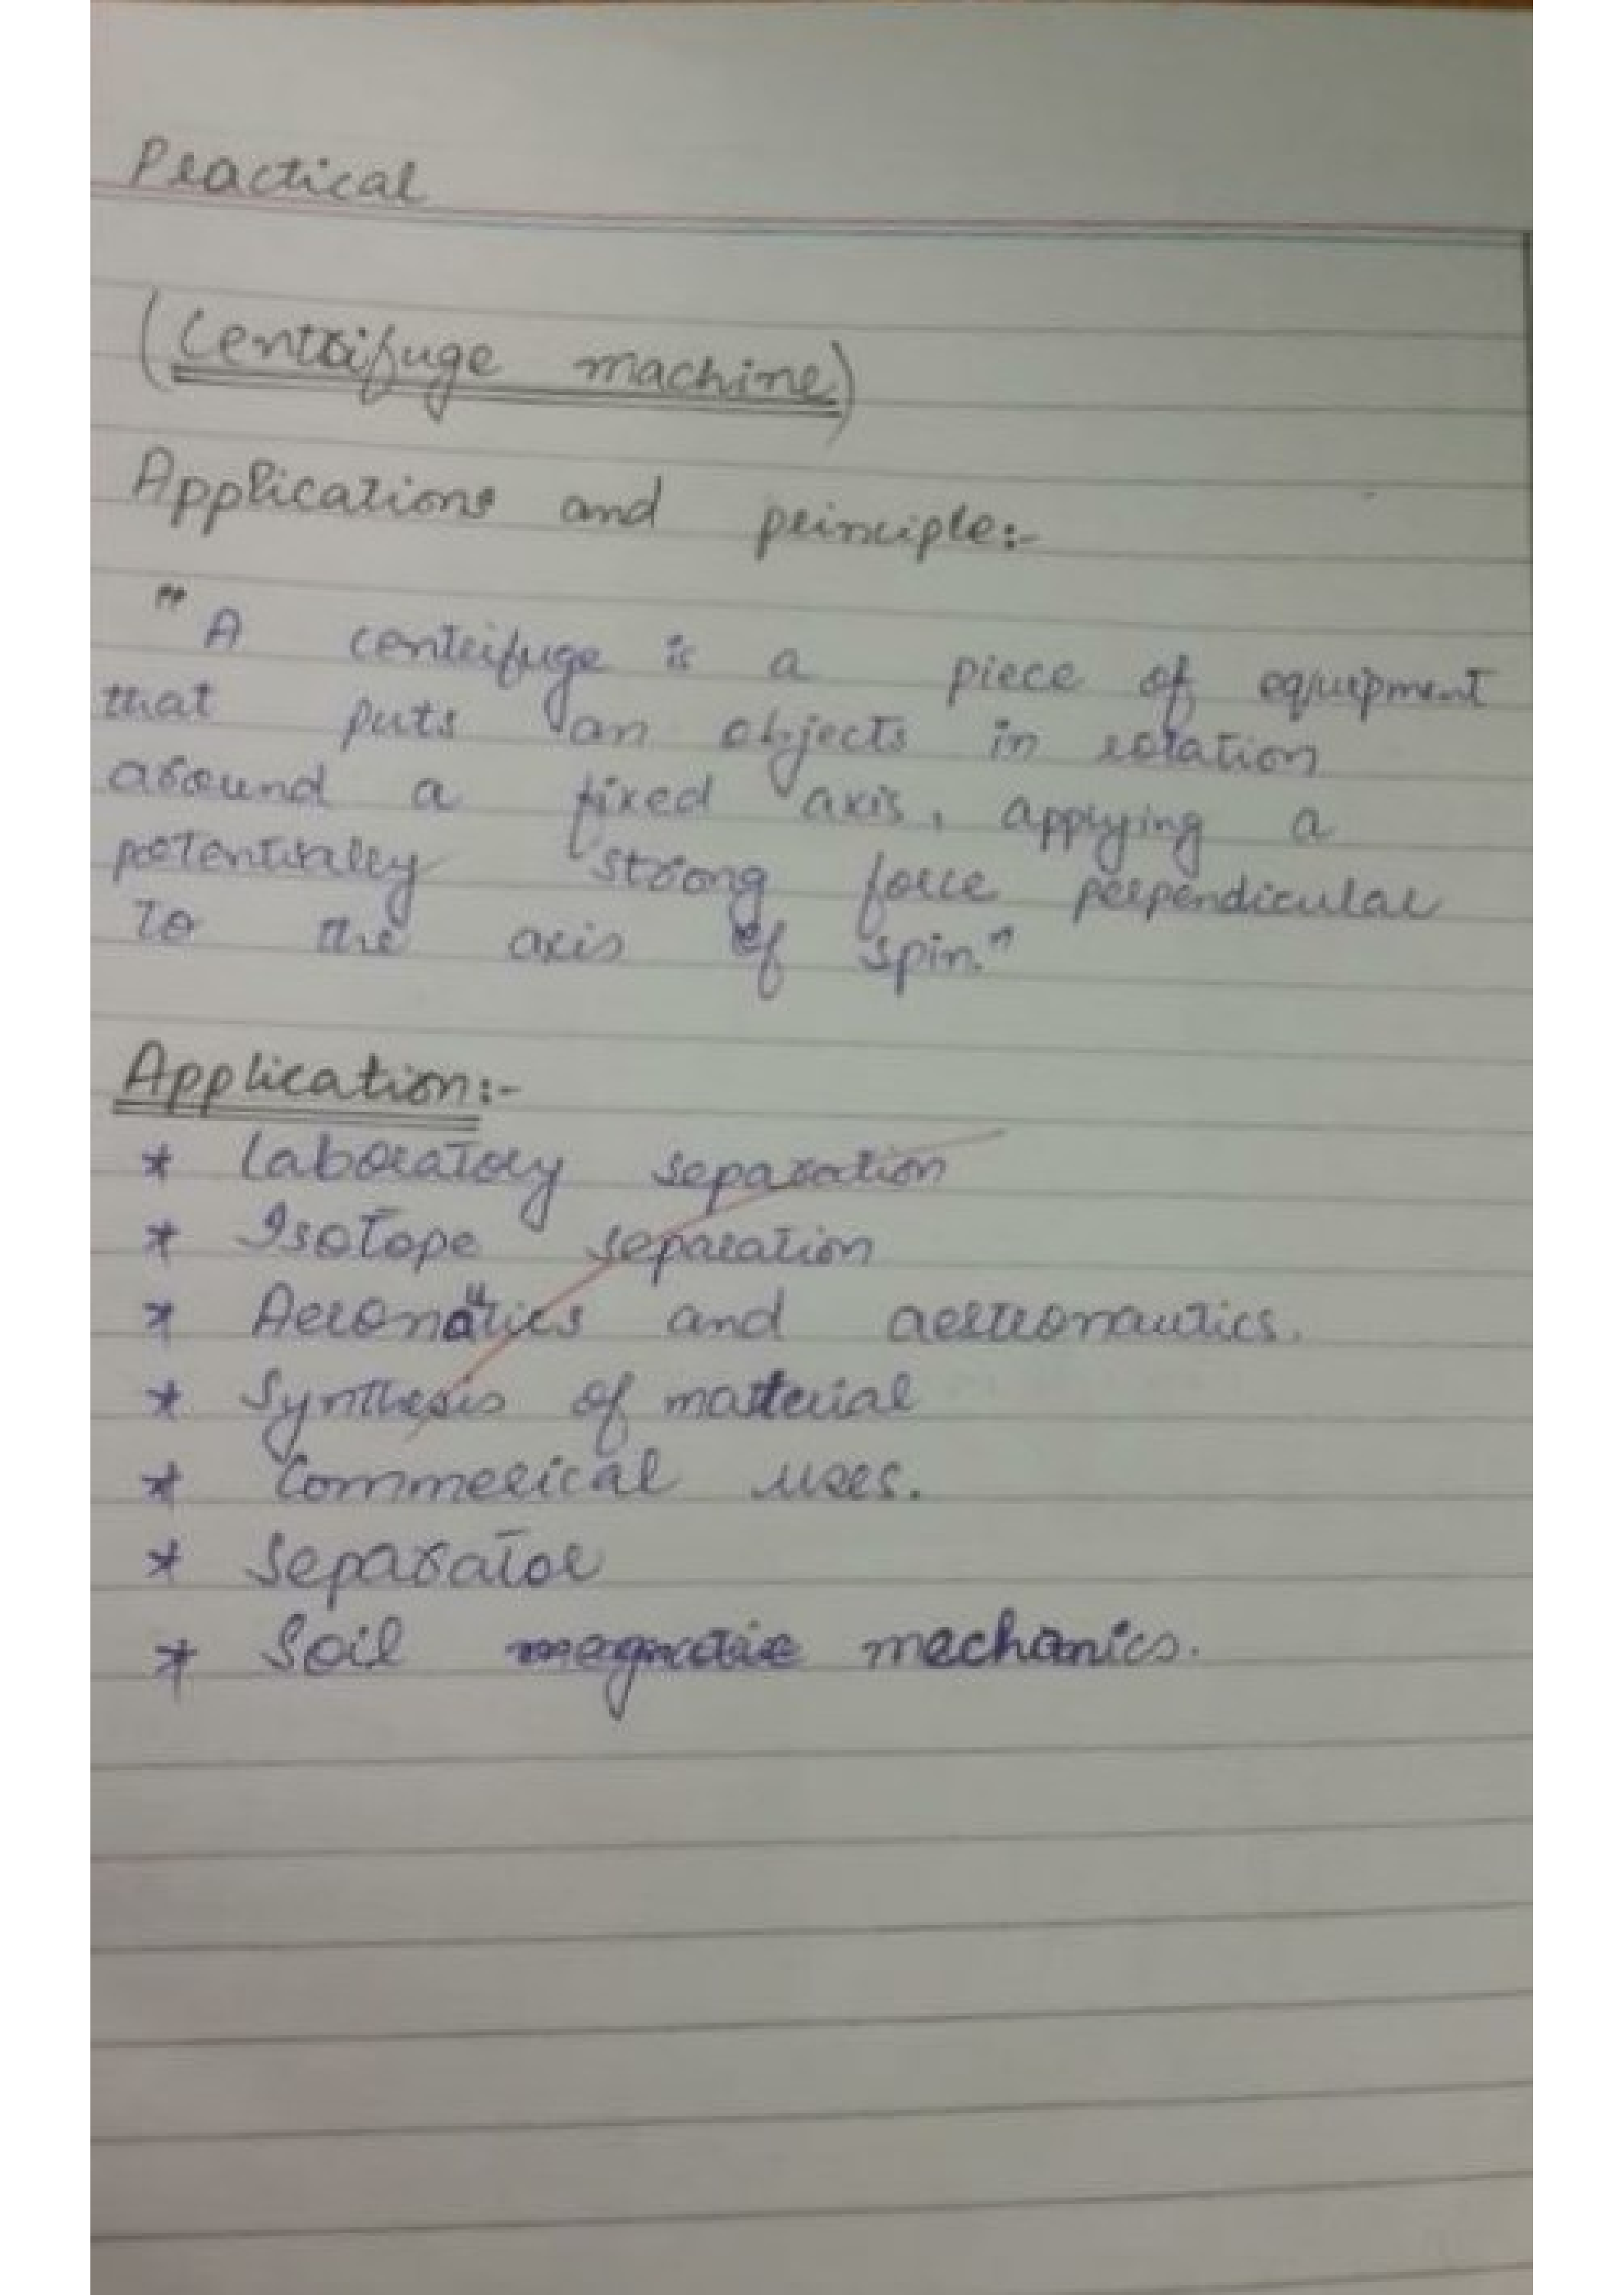 Practical
(Centrifuge machine)
Applications and principle:-
"A centrifuge is a piece of equipment
that puts an objects in rotation
around a fixed axis, applying a
potentially strong force perpendicular
to the axis of spin."
Application:-
* Laboratory separation
* Isotope separation
* Aeronautics and aestronautics.
* Synthesis of material
* Commerical uses.
* Separator
* Soil mechanics.